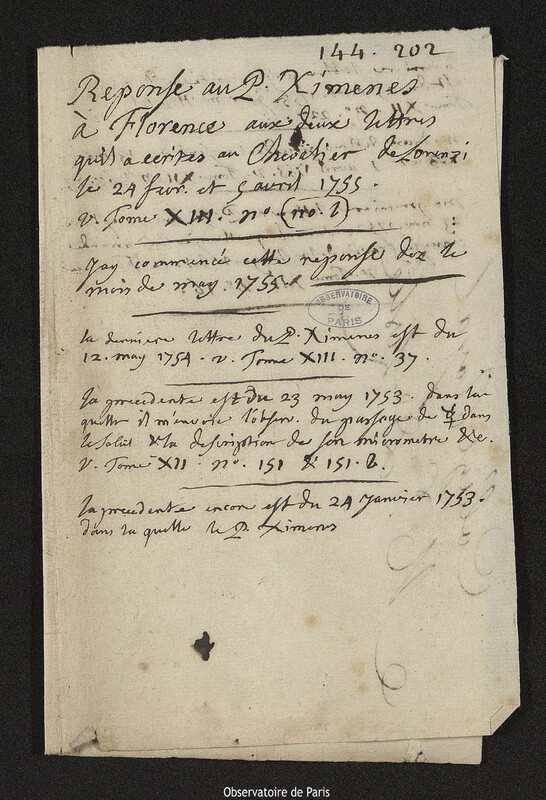 144. 202
Reponse au P. Ximenes
à Florence aux deux lettres
qu'il a ecrites au Chevalier de Lorenzi
le 24 fevr. et 5 avril 1755.
v. Tome XIII. no. (110. b)
Jay commencé cette reponse dez le
mois de may. 1755
OBSERVATOIRE
DE
PARIS
la derniere lettre du P. Ximenes est du
12. may 1754. v. Tome XIII. no. 37.
la precedente est du 23 may 1753. dans la
quelle il m'envoie l'obser. du passage de ☿ dans
le Soleil & la description de son micrometre &c.
v. Tome XII. no. 151 & 151. b.
la precedente encore est du 24 Janvier 1753.
dans la quelle le P. Ximenes
Observatoire de Paris